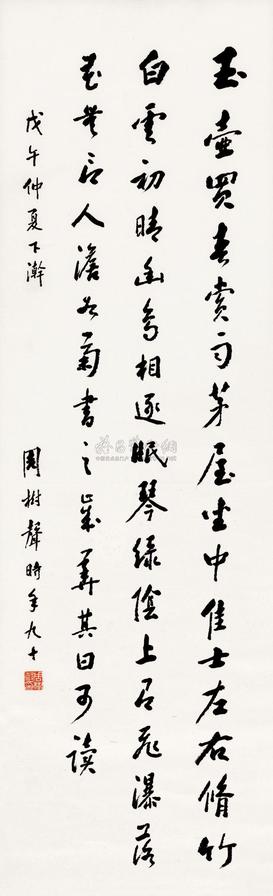 玉壶買春賞雨茅屋坐中佳士左右脩竹
白雲初晴幽鳥相逐眠琴綠陰上有飛瀑落
花無言人澹如菊書之歲華其曰可讀
戊午仲夏下澣
周樹聲時年九十